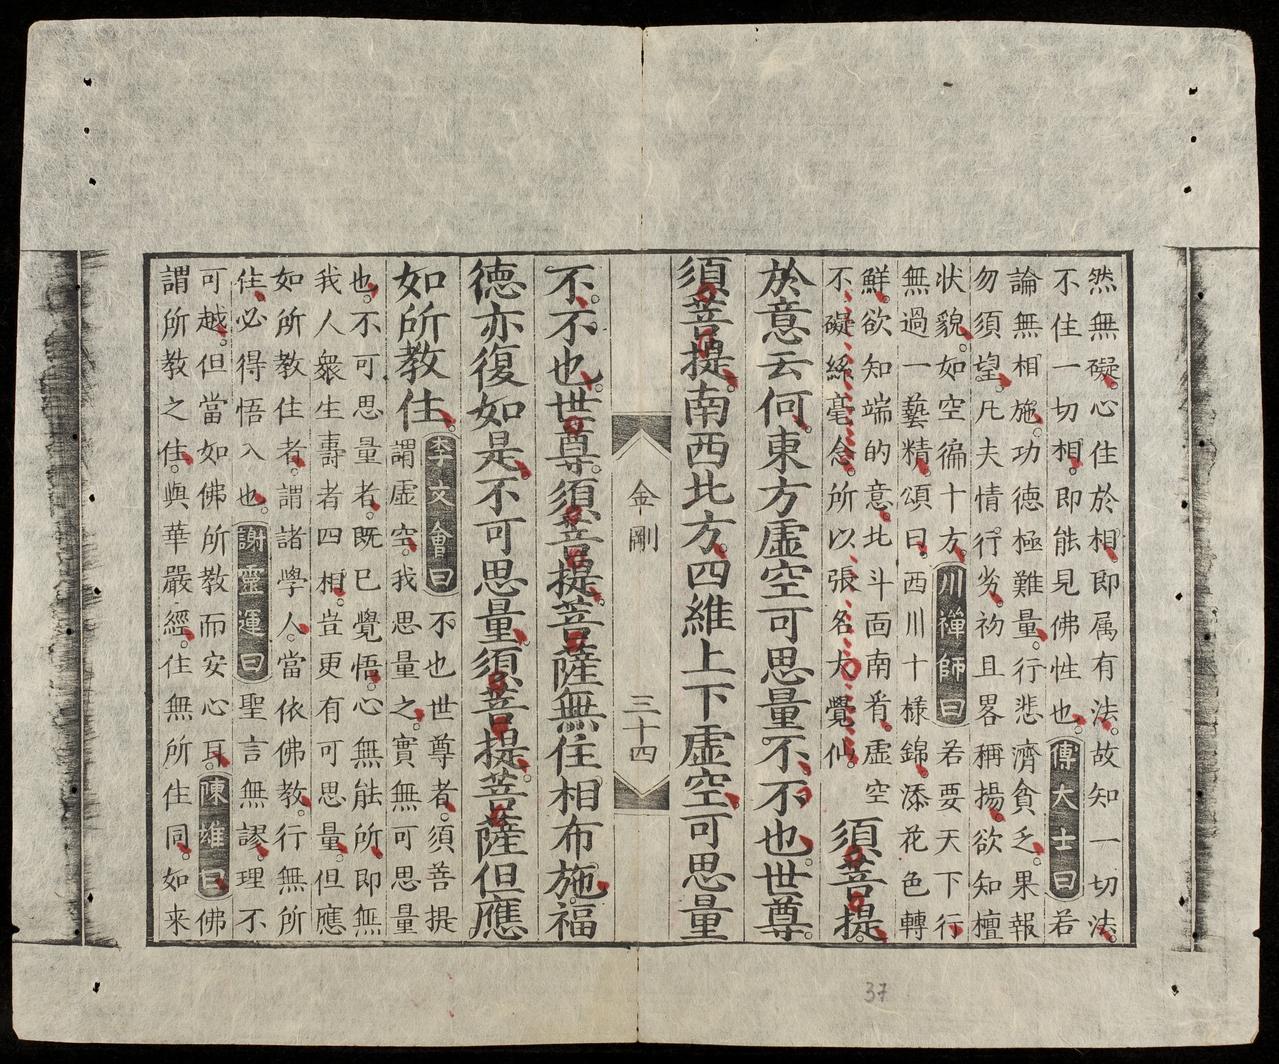 然無礙。心住於相。即属有法。故知一切法。
不住一切相。即能見佛性也。傅大士曰若
論無相施。功德極難量。行悲濟貧乏。果報
勿須望。凡夫情行劣。初且畧稱揚。欲知檀
状貌。如空徧十方。川禪師曰若要天下行
無過一藝精。頌曰。西川十様錦。添花色轉
鮮。欲知端的意。北斗面南看。虛空
不礙絲毫念。所以張名大覺仙。須菩提。
於意云何。東方虛空可思量不。不也。世尊。
須菩提。南西北方。四維上下虛空。可思量
金剛
三十四
不。不也。世尊。須菩提。菩薩無住相布施。福
德亦復如是。不可思量。須菩提。菩薩但應
如所教住。李文會曰不也世尊者。須菩提
謂虛空。我思量之。實無可思量
也。不可思量者。既已覺悟。心無能所。即無
我人衆生壽者四相。豈更有可思量。但應
如所教住者。謂諸學人。當依佛教。行無所
住。必得悟入也。謝靈運曰聖言無謬。理不
可越。但當如佛所教而安心耳。陳雄曰佛
謂所教之住。與華嚴經。住無所住同。如来
37